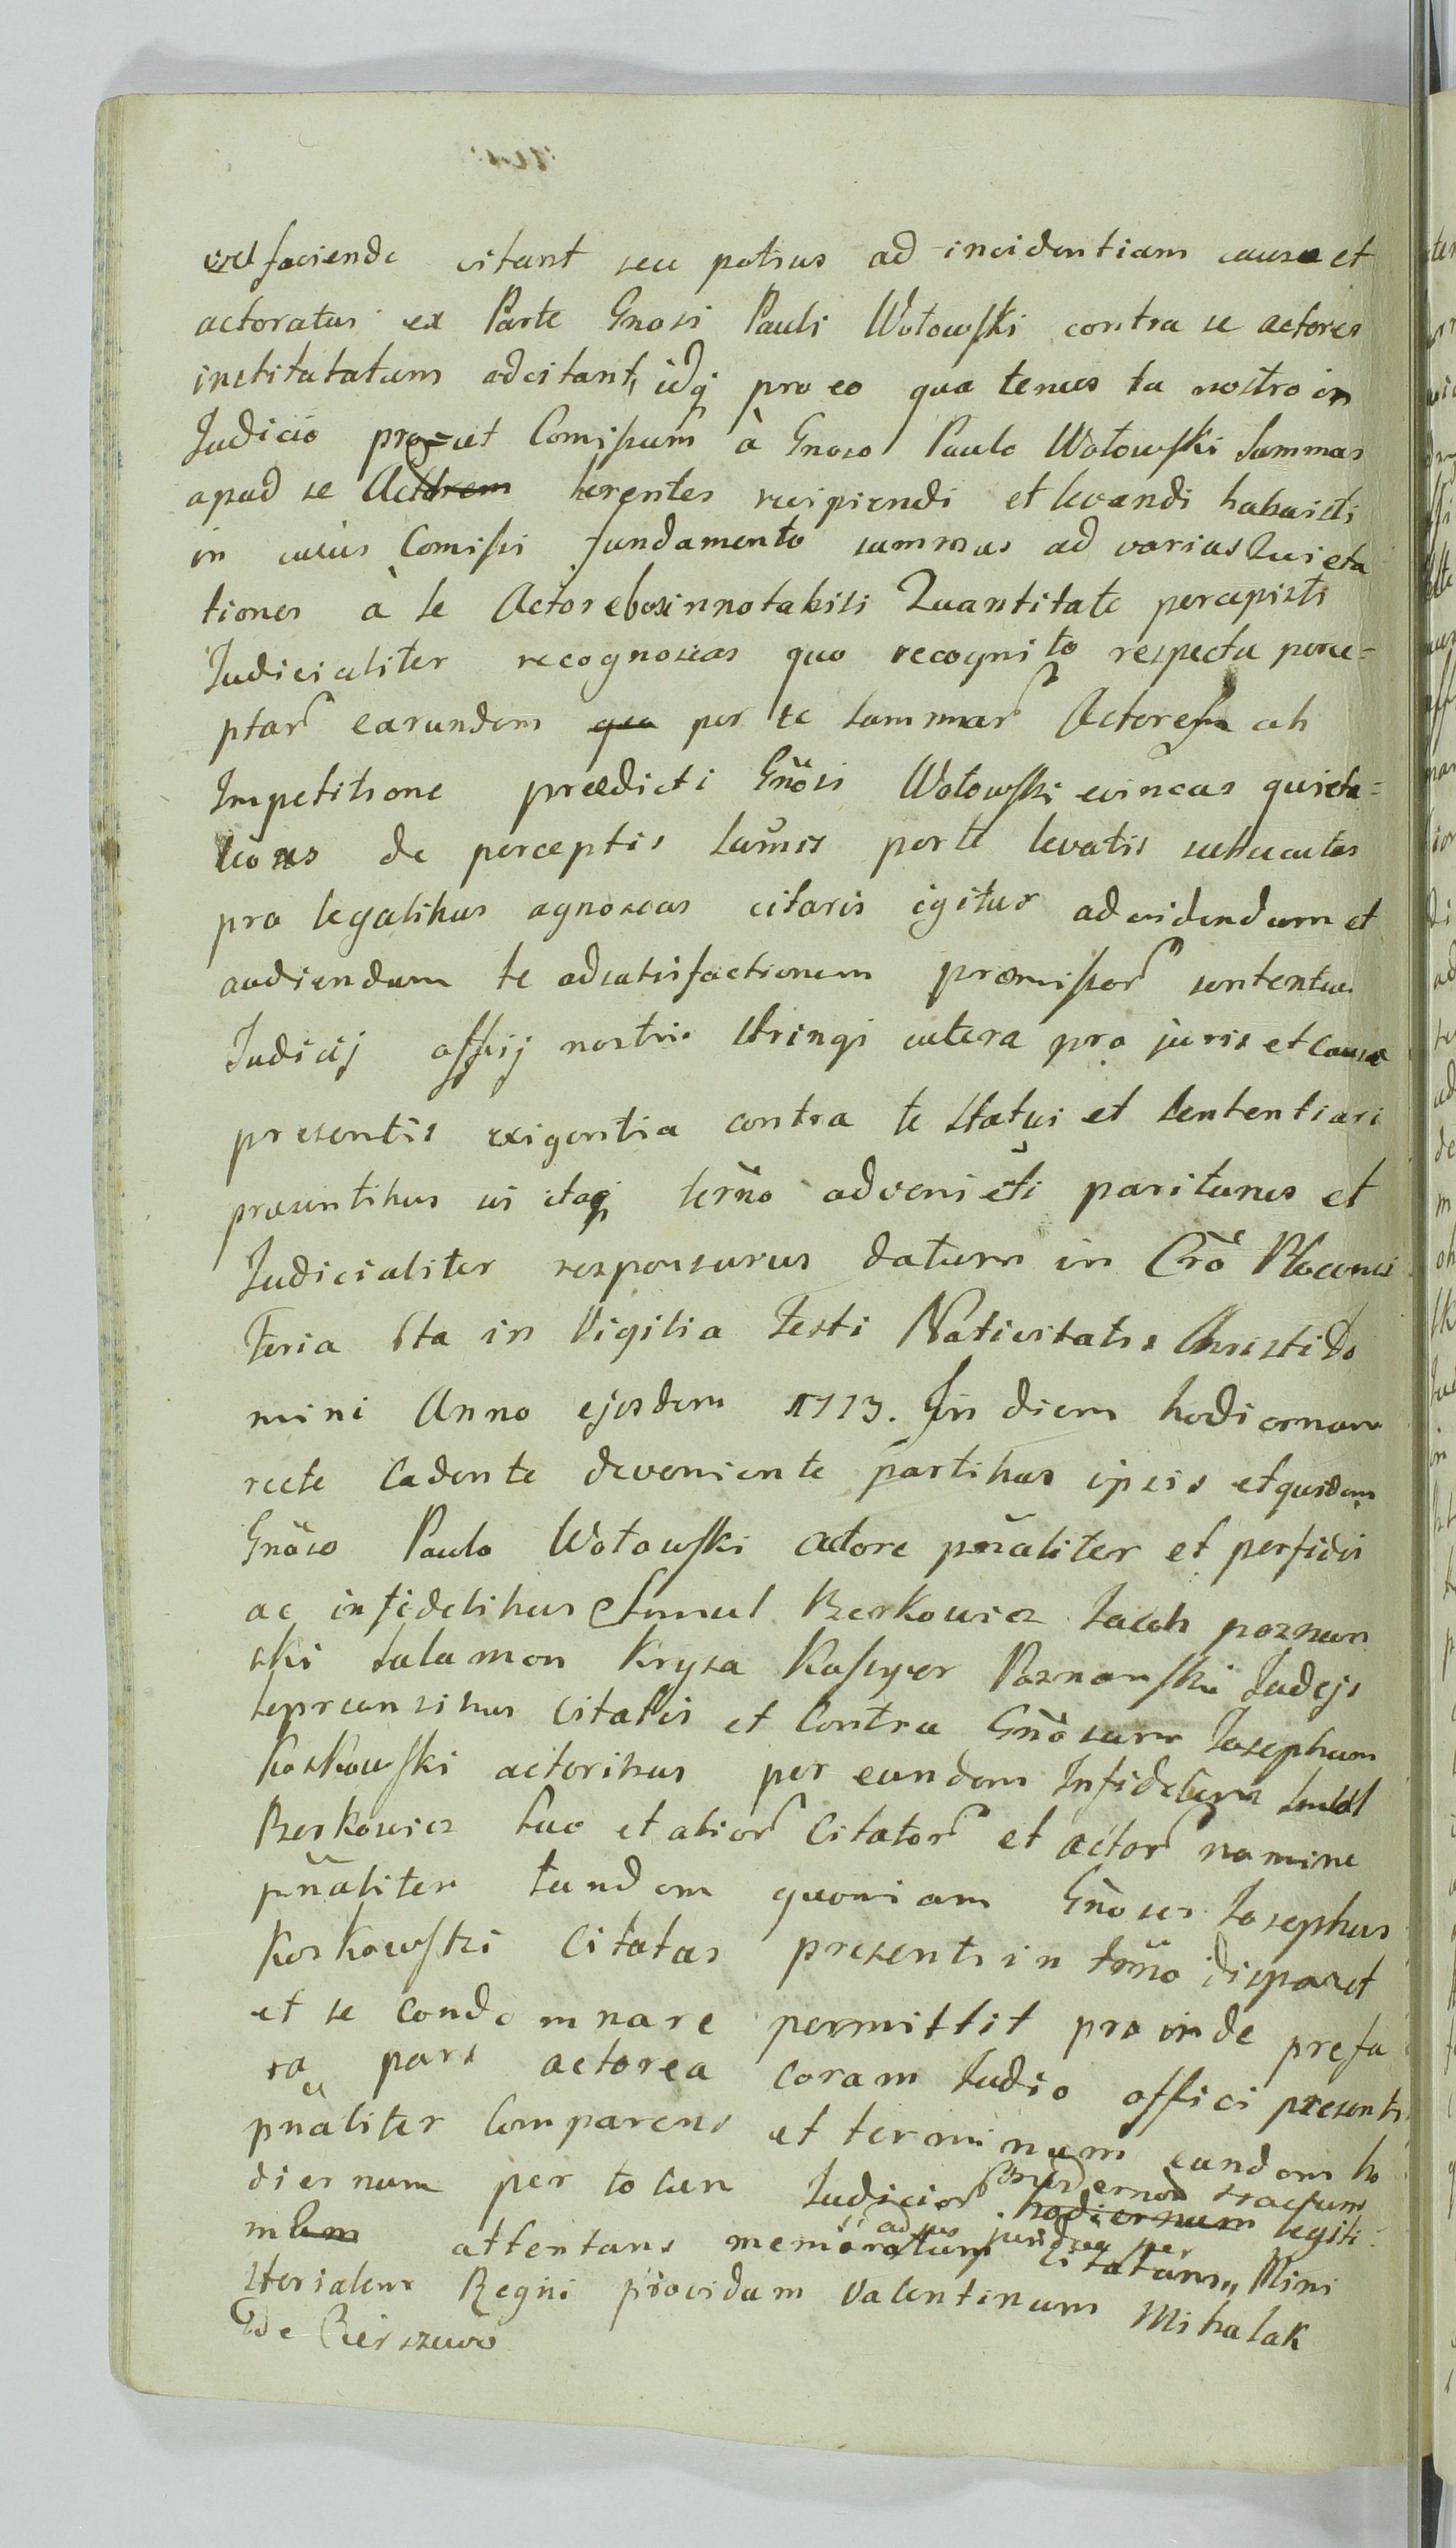 faciende citant seu potius ad incidentiam causae et
actoratus ex Parte Gnosi Pauli Wołowski contra se actores
institutatum adcitant, idq pro eo qua tenus tu nostro in
Judicio prout Comissum à Gnoso Paulo Wołowski Summas
apud se Actorem herentes recipiendi et levandi habuisti
in cuius Comissi fundamento summas ad varias Quieta
tiones à te Actorebus in notabili Quantitate percepisti
Judicialiter recognoscas quo recognito respectu perce=
ptar earundem qua per te summar Actores ab
Impetitione praedicti Gnosi Wołowski evincas quieta=
tiones de perceptis sumis per te levatis subsecutas
pro legalibus agnoscas citaris igitur ad videndum et
audiendum te ad satisfactionem praemissor sententia
Judicij officij nostri stringi cetera pro juris et causae
presentis exigentia contra te statui et sententiari
praesentibus ut itaq termo advenienti pariturus et
Judicialiter responsurus datum in Cro Plocensi
Feria 6ta in Vigilia Festi Nativitatis Christi Do
mini Anno ejusdem 1773. In diem hodiernum
recte cadente deveniente partibus ipsis et quidem
Gnoso Paulo Wołowski actore pnaliter et perfidis
ac infidelibus Smul Berkowicz Jacob poznan
ski Salamon Krysa Kasper Poznanski Judejs
Seprcensibus Citatis et Contra Gnosum Josephum
Koskowski actoribus per eundem Infidelem Smul
Berkowicz suo et alior Citator et actor nomine
pnaliter tandem quoniam Gnosus Josephus
Koskowski Citatus presenti in trmo disparet
et se condemnare permittit pro inde prefa
ta pars actorea coram Judio offici presenti
pnaliter Comparens et terminum eundem ho
diernum per totum Judicior modernor tractum
hodiernum legiti
mum attentans memoratum ad jus juridice per Citatum, Mini
sterialem Regni providum Valentinum Mihalak
De Bierszewo